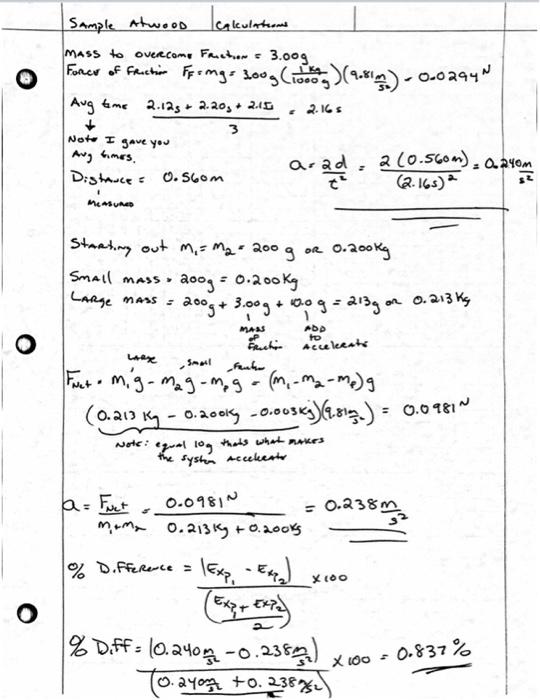 Sample Atwood Calculations
Mass to overcome Friction = 3.00g
Force of friction F_F = mg = 3.00g (1 kg / 1000 g) (9.81 m/s²) = 0.0294 N
Avg time (2.12s + 2.20s + 2.15) / 3 = 2.16 s
↓
Note I gave you
Avg times.
Distance = 0.560m
measured
a = 2d / t² = 2(0.560m) / (2.16s)² = 0.240 m/s²
Starting out m₁ = m₂ = 200 g or 0.200Kg
Small mass = 200g = 0.200Kg
Large mass = 200g + 3.00g + 10.0 g = 213g or 0.213 Kg
mass of friction
Add to accelerate
Large small friction
F_Net = m₁g - m₂g - m_Fg = (m₁ - m₂ - m_F)g
(0.213 Kg - 0.200Kg - 0.003Kg)(9.81 m/s²) = 0.0981 N
Note: equal 10g thats what makes
the system accelerate
a = F_Net / (m₁+m₂) = 0.0981 N / (0.213Kg + 0.200Kg) = 0.238 m/s²
% Difference = |Exp₁ - Exp₂| / ((Exp₁ + Exp₂) / 2) x100
% Diff = |0.240 m/s² - 0.238 m/s²| / (0.240 m/s² + 0.238 m/s²) x 100 = 0.837 %